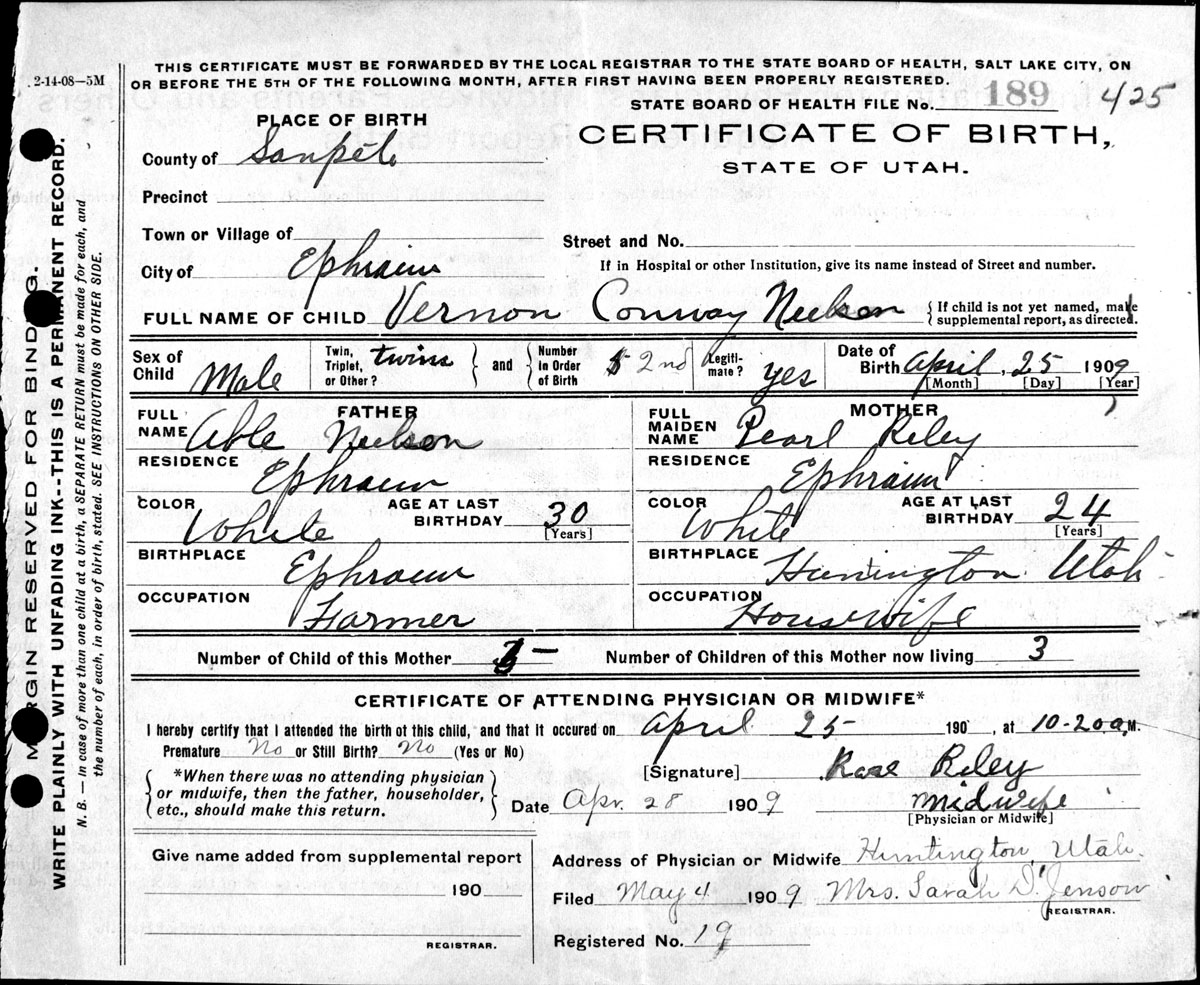 2-14-08—5M
THIS CERTIFICATE MUST BE FORWARDED BY THE LOCAL REGISTRAR TO THE STATE BOARD OF HEALTH, SALT LAKE CITY, ON
OR BEFORE THE 5TH OF THE FOLLOWING MONTH, AFTER FIRST HAVING BEEN PROPERLY REGISTERED.
STATE BOARD OF HEALTH FILE No. 189 425
PLACE OF BIRTH
CERTIFICATE OF BIRTH,
STATE OF UTAH.
County of Sanpete
Precinct
Town or Village of
Street and No.
City of Ephraim
If in Hospital or other Institution, give its name instead of Street and number.
FULL NAME OF CHILD Vernon Conway Neilson
{If child is not yet named, make
supplemental report, as directed.
Sex of Child Male
Twin, Triplet, or Other? twins
and
Number in Order of Birth 2nd
Legitimate? yes
Date of Birth April 25 1909
[Month] [Day] [Year]
FATHER
FULL NAME Able Neilson
RESIDENCE Ephraim
COLOR White
AGE AT LAST BIRTHDAY 30 [Years]
BIRTHPLACE Ephraim
OCCUPATION Farmer
MOTHER
FULL MAIDEN NAME Pearl Riley
RESIDENCE Ephraim
COLOR White
AGE AT LAST BIRTHDAY 24 [Years]
BIRTHPLACE Huntington Utah
OCCUPATION Housewife
Number of Child of this Mother
Number of Children of this Mother now living 3
CERTIFICATE OF ATTENDING PHYSICIAN OR MIDWIFE*
I hereby certify that I attended the birth of this child, and that it occured on April 25 190 , at 10-20 a M.
Premature No or Still Birth? No (Yes or No)
{*When there was no attending physician
or midwife, then the father, householder,
etc., should make this return.}
[Signature] Riley
Date Apr. 28 1909 Midwife
[Physician or Midwife]
Give name added from supplemental report
190
REGISTRAR.
Address of Physician or Midwife Huntington, Utah.
Filed May 4 1909 Mrs. Sarah D. Jenson
REGISTRAR.
Registered No. 19
MARGIN RESERVED FOR BINDING.
WRITE PLAINLY WITH UNFADING INK--THIS IS A PERMANENT RECORD.
N. B. — In case of more than one child at a birth, a SEPARATE RETURN must be made for each, and
the number of each, in order of birth, stated. SEE INSTRUCTIONS ON OTHER SIDE.